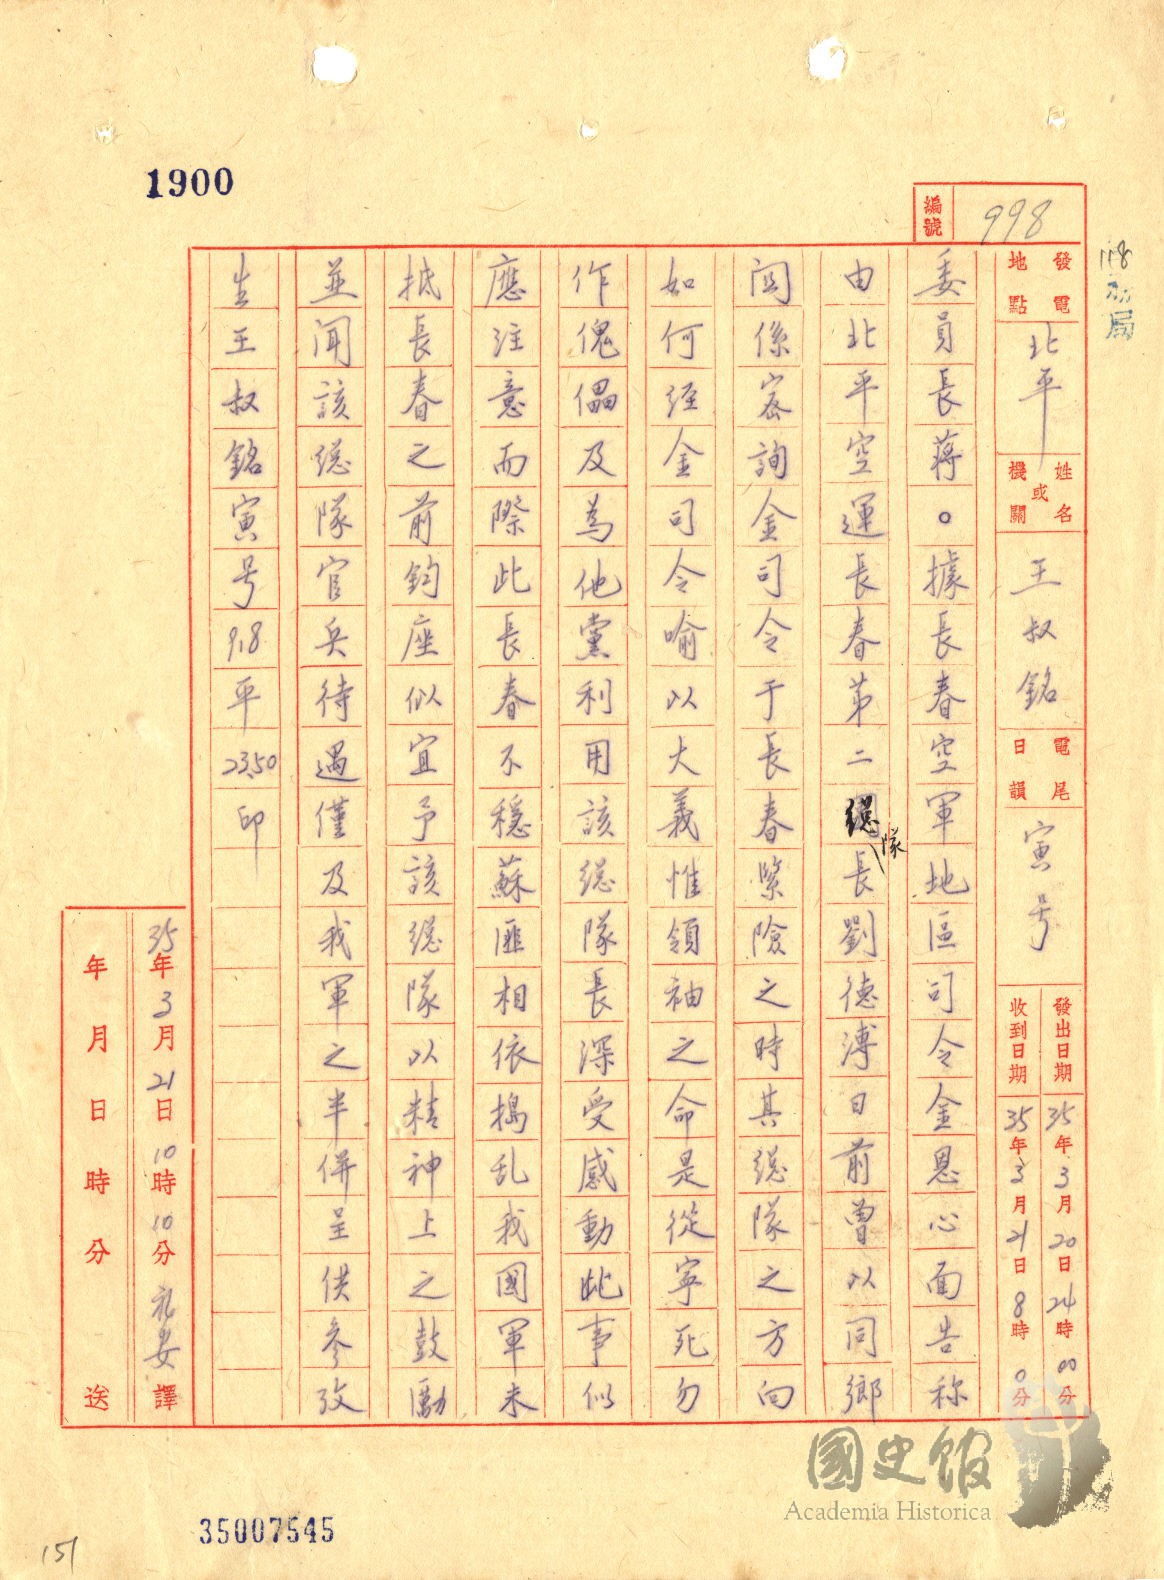 1900
編號 998
118
發電地點 北平
姓名或機關 王叔銘
電尾日韻 寅号
發出日期 35年3月20日24時00分
收到日期 35年3月21日8時0分
委員長蔣。據長春空軍地區司令金恩心面告称
由北平空運長春第二總隊長劉德溥日前曾以同鄉
関係密詢金司令于長春緊險之時其總隊之方向
如何经金司令喻以大義惟領袖之命是從寧死勿
作傀儡及為他黨利用該總隊長深受感動此事似
應注意而際此長春不穩蘇匪相依搗乱我國軍未
抵長春之前鈞座似宜予該總隊以精神上之鼓勵
並闻該總隊官兵待遇僅及我軍之半併呈供參攷
生王叔銘寅号918平2350印
35年3月21日10時10分 譯
年月日時分送
國史館
Academia Historica
35007545
151